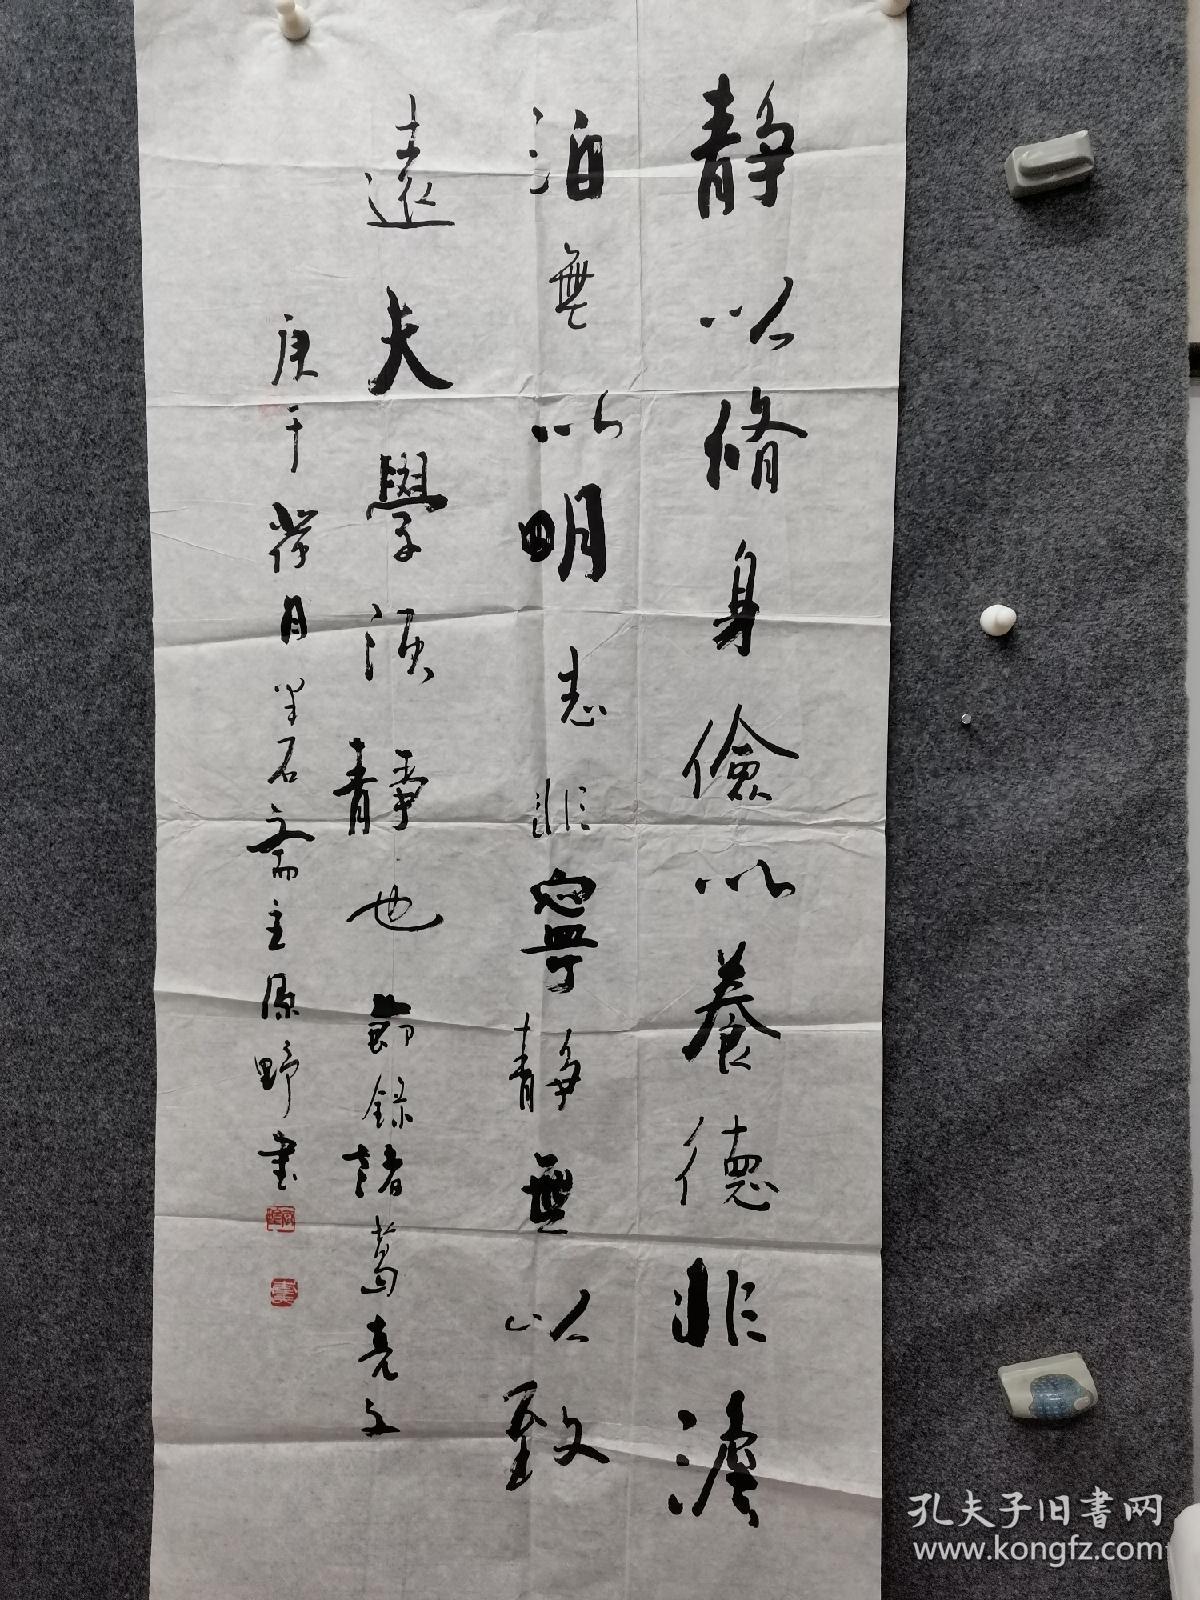 静以脩身儉以養德非澹
泊無以明志非寧静無以致
遠夫學須靜也節錄諸葛亮文
庚子荷月半石斋主原野書
孔夫子旧書网
www.kongfz.com